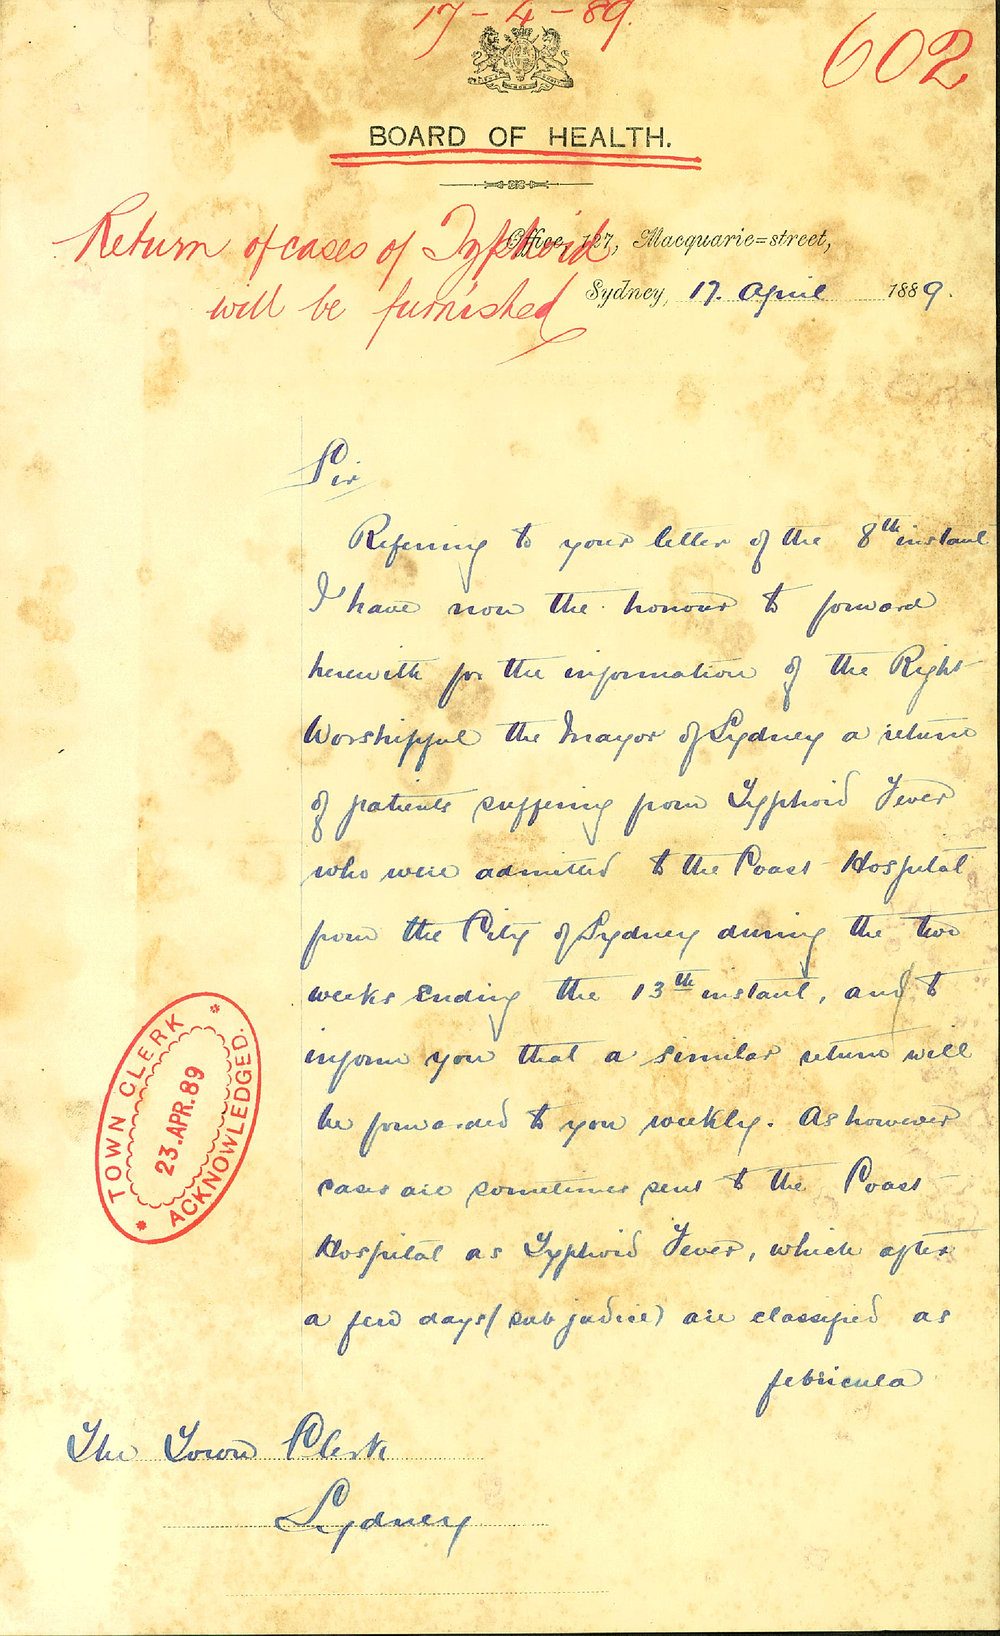 17-4-89.
602
BOARD OF HEALTH.
Return of cases of Typhoid
will be furnished
Office, 127, Macquarie=street,
Sydney, 17. April 1889.
Sir
Referring to your letter of the 8th instant
I have now the honour to forward
herewith for the information of the Right
Worshipful the Mayor of Sydney a return
of patients suffering from Typhoid Fever
who were admitted to the Coast Hospital
from the City of Sydney during the two
weeks ending the 13th instant, and to
inform you that a similar return will
be forwarded to you weekly. As however
cases are sometimes sent to the Coast
Hospital as Typhoid Fever, which after
a few days (sub judice) are classified as
febricula
TOWN CLERK
23.APR.89
ACKNOWLEDGED.
The Town Clerk
Sydney